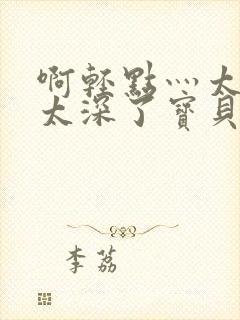 啊轻點灬太
太深了寶貝
李荔